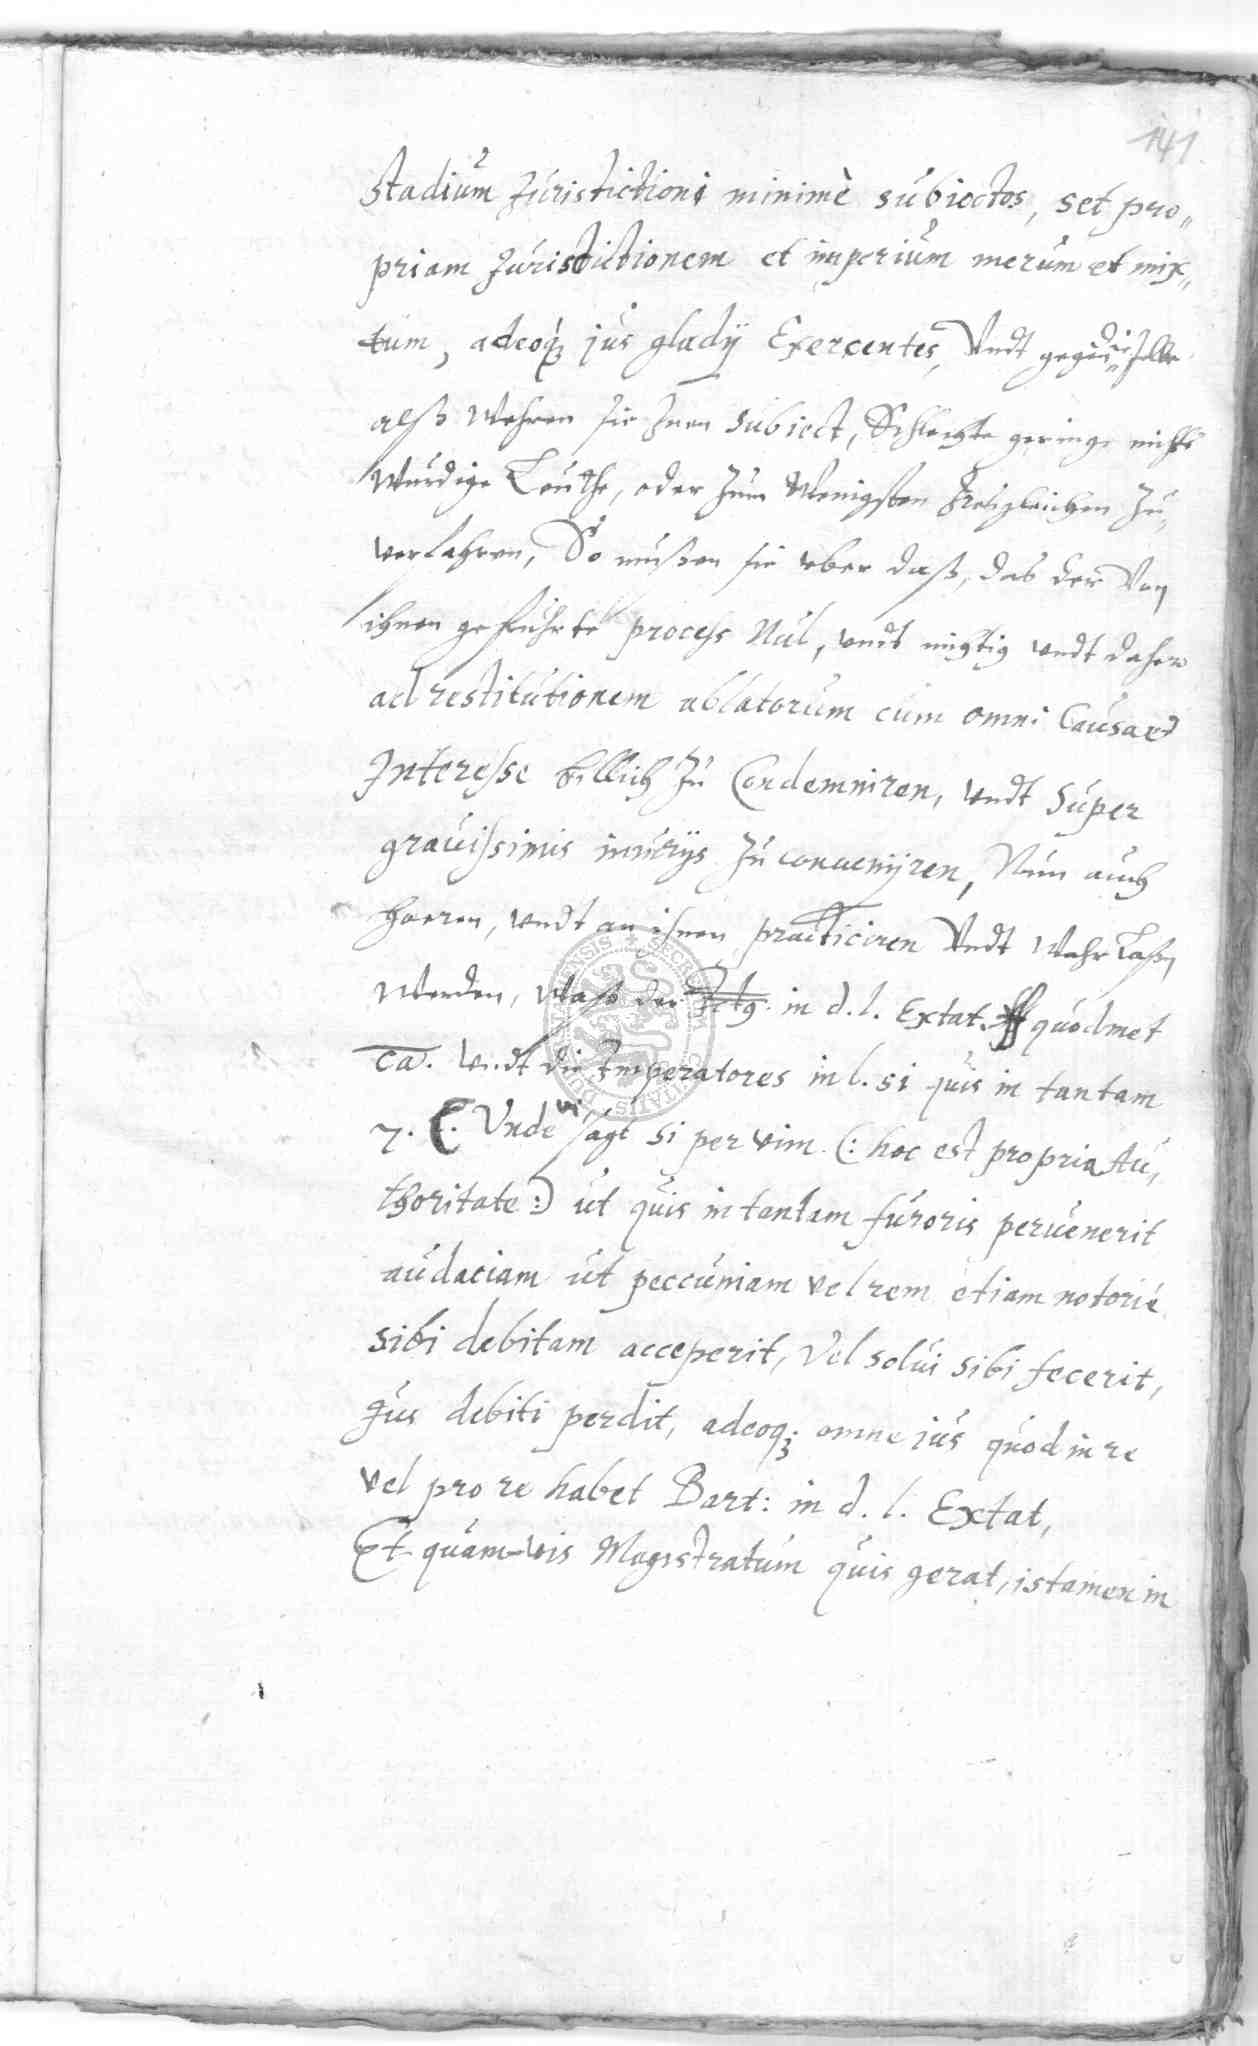 141
Stadium Juristictioni minimè subiectos, set pro„
priam Juristictionem et imperium merum et mix„
tum, adeoq; jus gladÿ Exercentes, Undt gegen dieselbe
alß wehren sie Jnen subiect, Schlechte geringe nichts
wurdige Leuthe, oder zum wenigsten Jresgleichen zu„
verfahren, So mußen sie vber daß, das der von
ihnen gefuhrte process Nul, vndt nichtig vndt daher
ad restitutionem ablatorum cum omni Causa et
Interesse billich zu Condemniren, vndt super
grauissimis iniurijs zu convenijren, Nun auch
hoeren, vndt an ihnen practiciren Undt wahr laßen
werden, waß der Jctg. in d. l. Extat. ff quod met
ca. vndt die Imperatores in l. si quis in tantam
7. C. Unde vi sagt si per vim (: hoc est propria Au„
thoritate :) ut quis in tantam furoris peruenerit
audaciam ut peccuniam vel rem etiam notorié
sibi debitam acceperit, Vel solui sibi fecerit,
Jus debiti perdit, adeoq; omne ius quod in re
vel pro re habet Bart: in d. l. Extat,
Et quam-vis Magistratum quis gerat, is tamen in